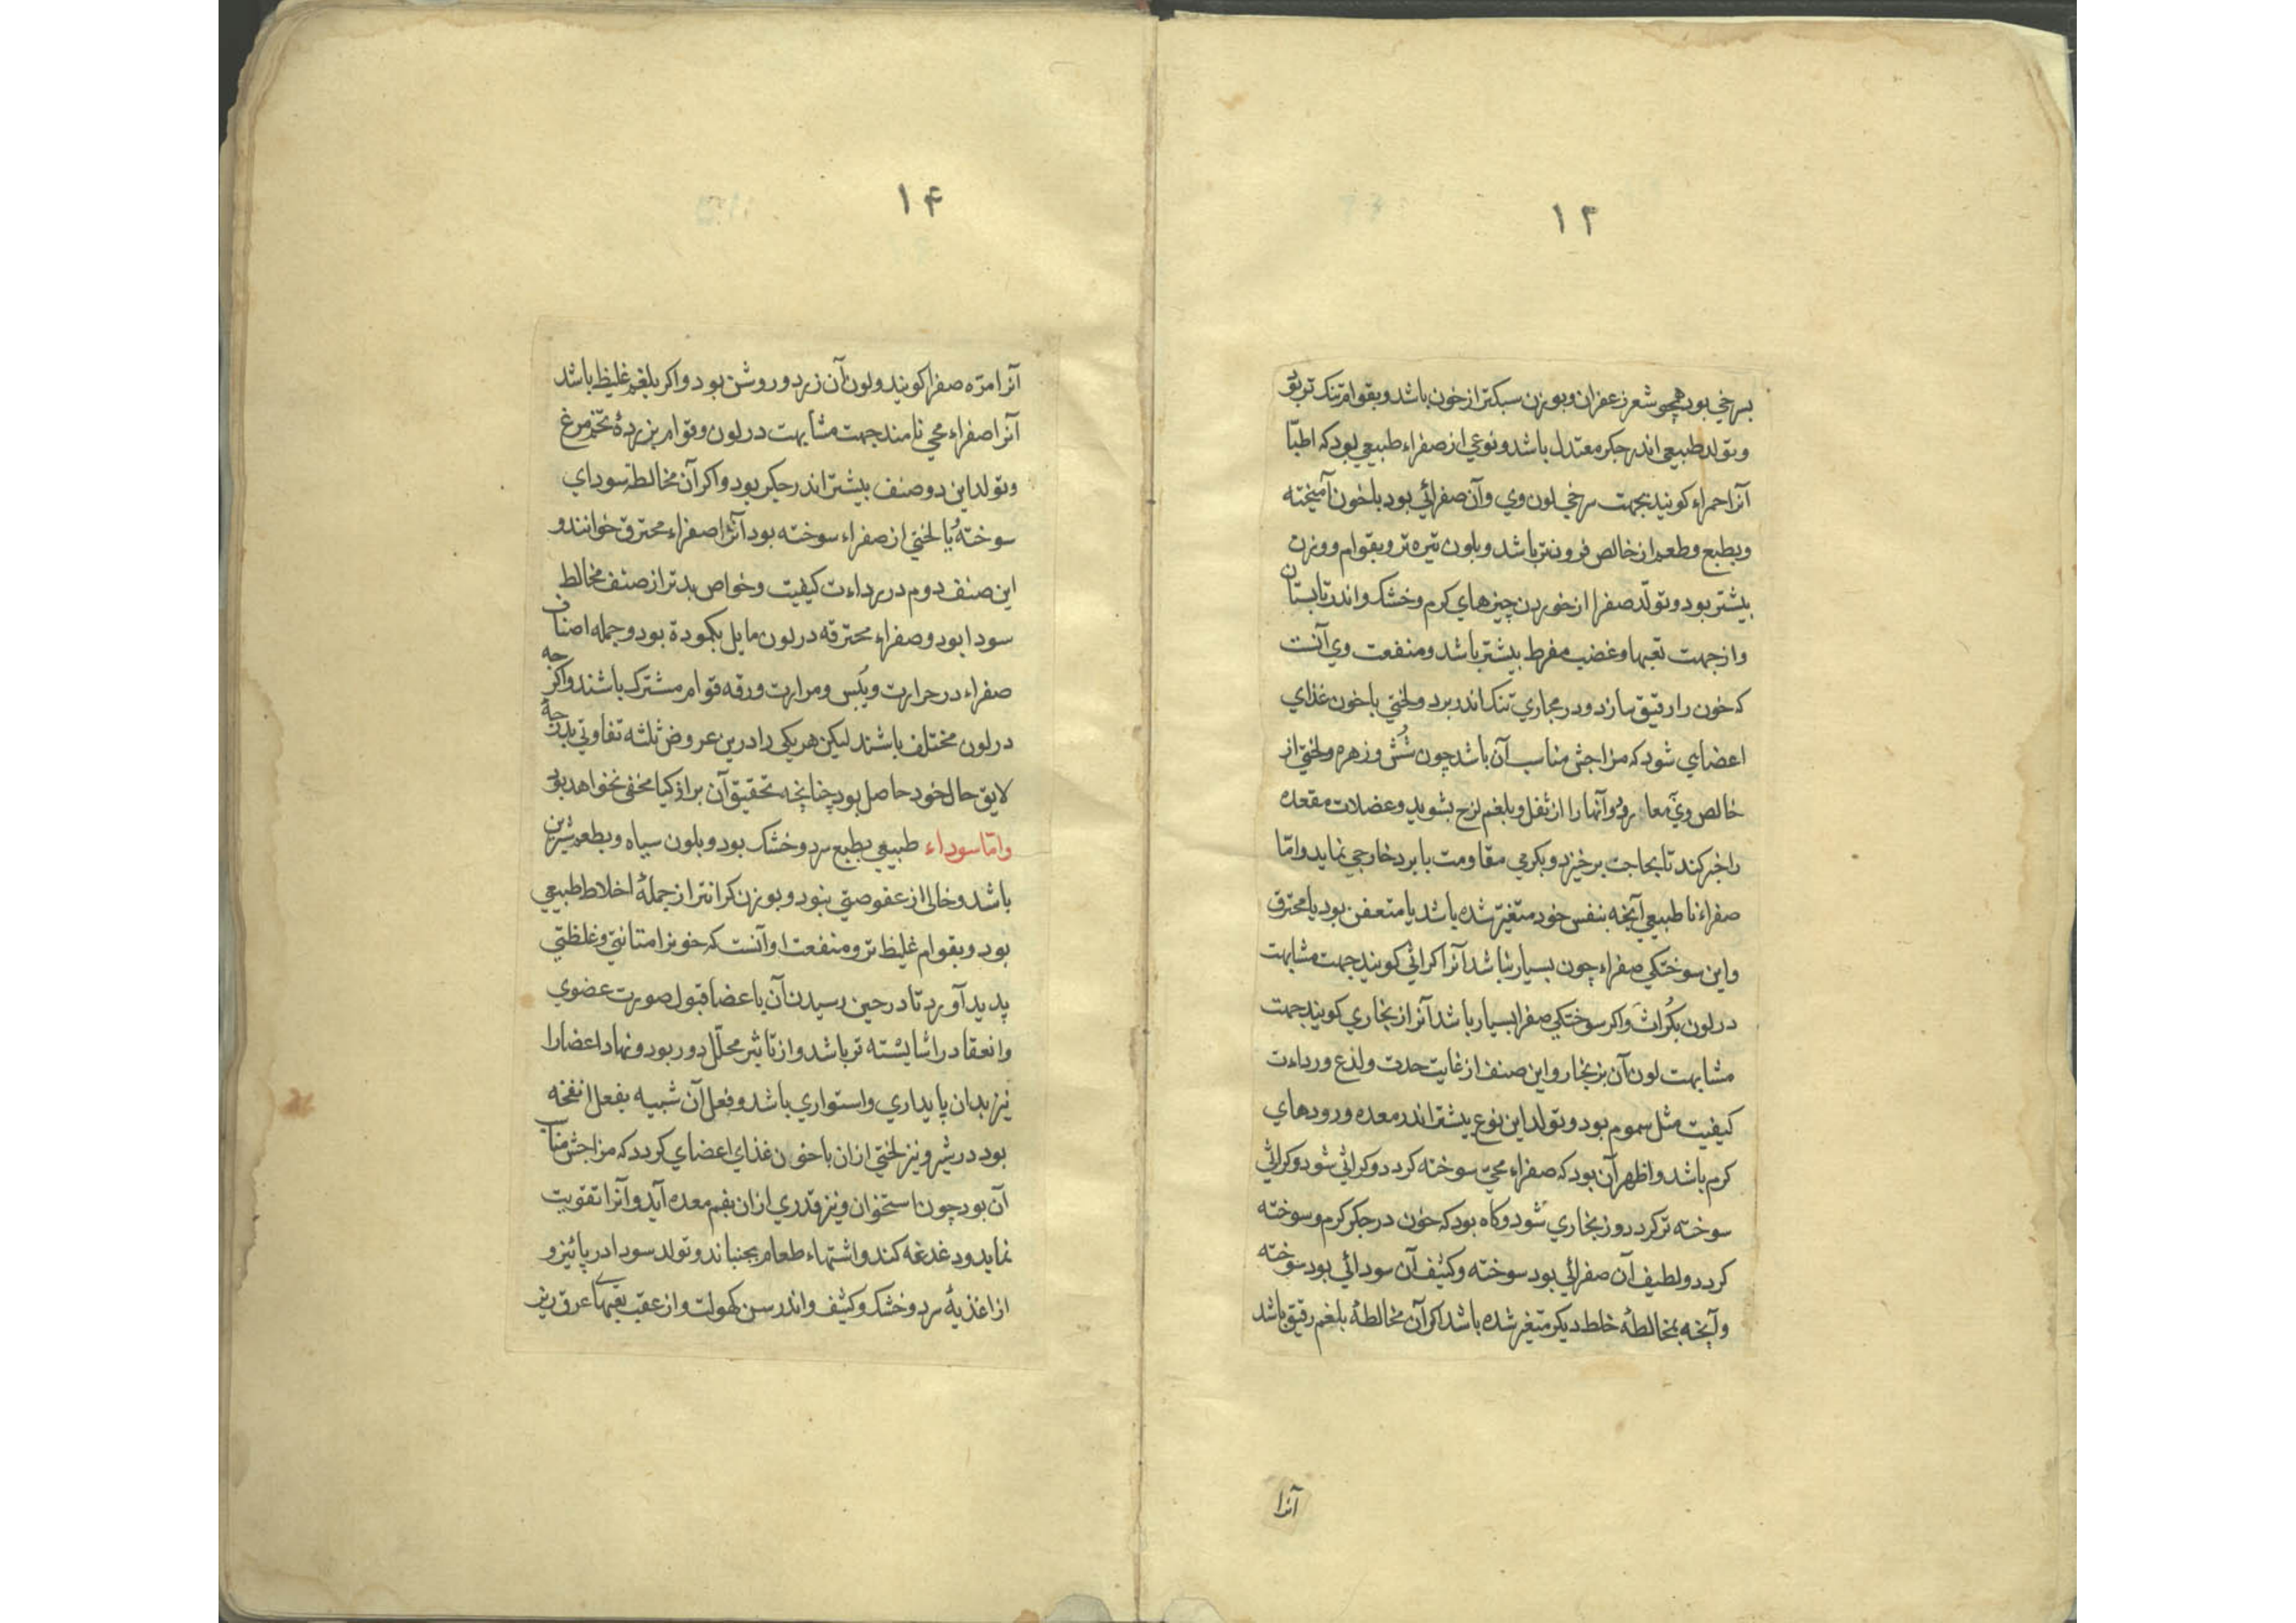 ۱۳
بسرخی بود همچو شعر زعفران و بوزن سبکتر از خون باشد و بقوام تنک تر بود
و تولد طبیعی اندر جکر معتدل باشد و نوعی از صفراء طبیعی بود که اطبّا
آنرا حمراء کویند بجهت سرخی لون وی و آن صفرائی بود با خون آمیخته
و بطبع و طعم از خالص فروتر باشد و بلون تیره تر و بقوام و وزن
بیشتر بود و تولّد صفرا از خوردن چیزهای کرم و خشک و اندر تابستان
و از جهت تعبها و غضب مفرط بیشتر باشد و منفعت وی آنست
که خون را رقیق سازد و در مجاری تنک اندر برد و لختی با خون غذای
اعضای شود که مزاجش مناسب آن باشد چون شُش و زهره و لختی از
خالص وی بمعا رود و آنها را از ثفل و بلغم لزج بشوید و عضلات مقعده
را خبر کند تا بحاجت برخیزد و بکرمی مقاومت با برد خارجی نماید و امّا
صفراء ناطبیعی آنچه بنفس خود متغیّر شده باشد یا متعفن بود یا محترق
و این سوختکی صفراء چون بسیار نباشد آنرا کراثی کویند جهت مشابهت
در لون بکُراث و اکر سوختکی صفرا بسیار باشد آنرا زنجاری کویند جهت
مشابهت لون آن بزنجار و این صنف از غایت حدت و لذع و رداءت
کیفیت مثل سموم بود و تولد این نوع بیشتر اندر معده و رودهای
کرم باشد و اظهر آن بود که صفراء محی سوخته کردد و کراثی شود و کراثی
سوخته تر کردد و زنجاری شود و کاه بود که خون در جکر کرم و سوخته
کردد و لطیف آن صفرائی بود سوخته و کثیف آن سودائی بود سوخته
و آنچه بمخالطهٔ خلط دیکر متغیر شده باشد اکر آن مخالطهٔ بلغم رقیق باشد
آنرا
۱۴
آنرا مرّه صفرا کویند و لون آن زرد و روشن بود و اکر بلغم غلیظ باشد
آنرا صفراء محی نامند جهت مشابهت در لون و قوام بزردهٔ تخم مرغ
و تولد این دو صنف بیشتر اندر جکر بود و اکر آن مخالطه سودای
سوخته یا لختی از صفراء سوخته بود آنرا صفراء محترق خوانند و
این صنف دوم در رداءت کیفیت و خواص بدتر از صنف مخالط
سودا بود و صفراء محترقه در لون مایل بکمودة بود و جمله اصناف
صفراء در حرارت و یُبس و مرارت و رقه قوام مشترک باشند و اکرچه
در لون مختلف باشند لیکن هر یکی را درین عروض ثلثه تفاوتی بدرجهٔ
لایق حال خود حاصل بود چنانچه تحقیق آن بر اذکیا مخفی نخواهد بود
و امّا سوداء طبیعی بطبع سرد و خشک بود و بلون سیاه و بطعم شیرین
باشد و خالی از عفوصتی نبود و بوزن کرانتر از جملهٔ اخلاط طبیعی
بود و بقوام غلیظ تر و منفعت او آنست که خونرا متانتی و غلظتی
پدید آورد تا در حین رسیدن آن باعضا قبول صورت عضوی
و انعقاد را شایسته تر باشد و از تأثیر محلّل دور بود و نهاد اعضا را
نیز بدان پایداری و استواری باشد و فعل آن شبیه بفعل انفخه
بود در شیر و نیز لختی ازان با خون غذای اعضای کردد که مزاجش مناسب
آن بود چون استخوان و نیز قدری ازان بفم معده آید و آنرا تقویت
نماید و دغدغه کند و اشتهاء طعام بجنباند و تولد سودا در پائیز و
از اغذیهٔ سرد و خشک و کثیف و اندر سن کهولت و از عقب تعبهای عرق ریز